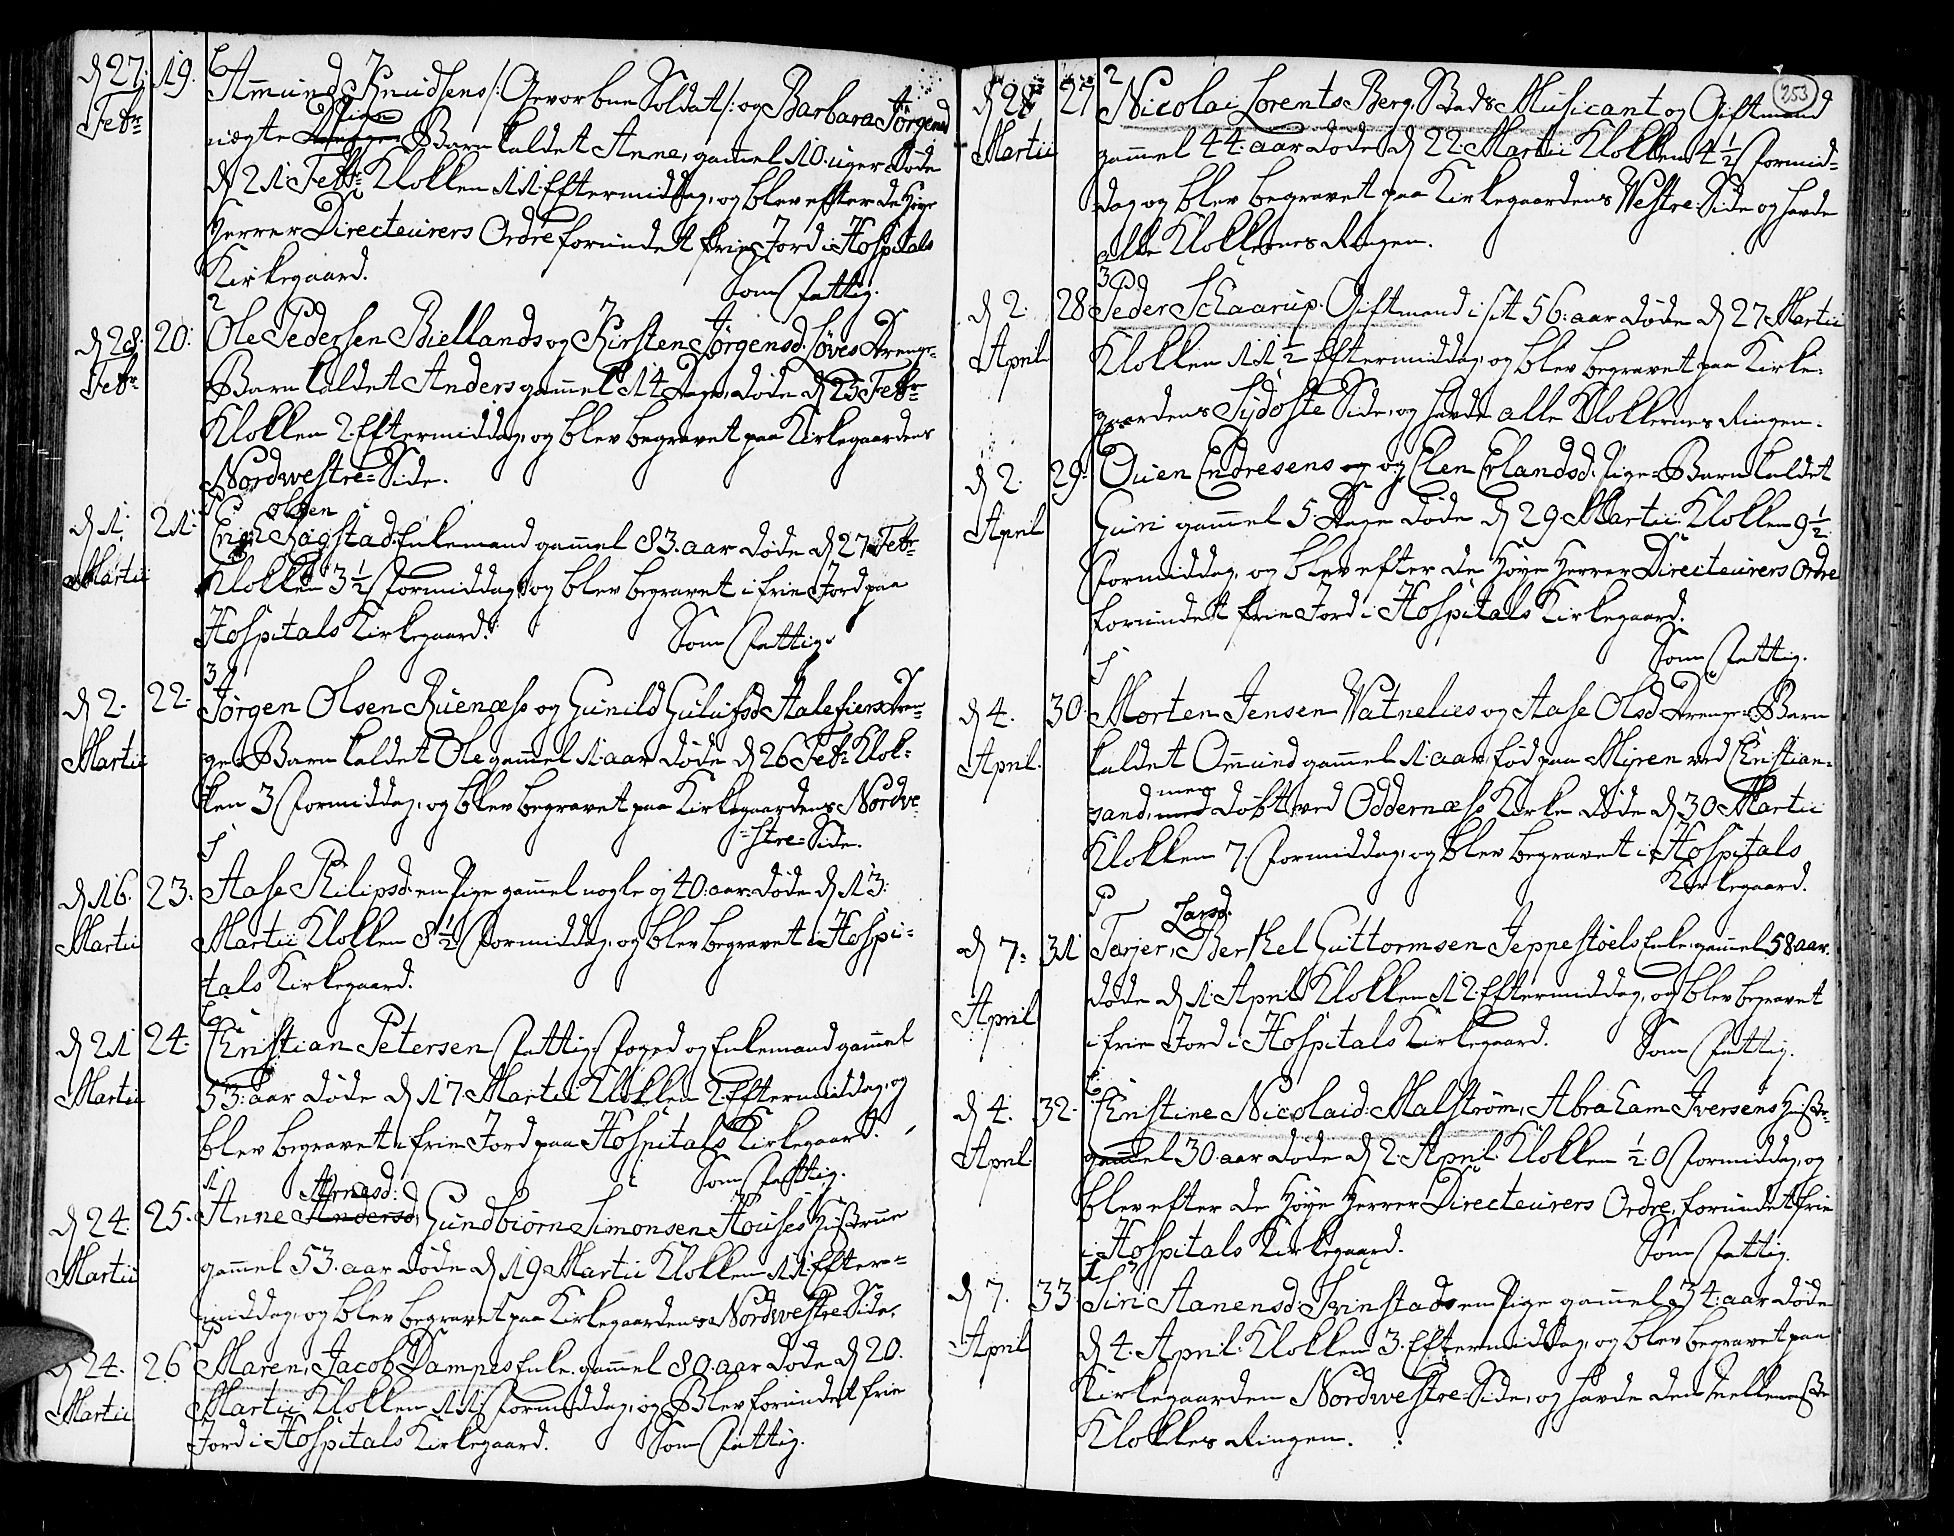 d 27. 19. Amund Knudsens /: Gevorbne Soldat :/ og Barbara Jørgensd
Febr: Pige
ægte Barn kaldet Anne, gam̄el 10: uger døde
d 21: Febr: Klokken 11. Eftermiddag, og blev efter de Høye
Herrer Directeurers Ordre forundet frie Jord i Hospitals
Kirkegaard. Som Fattig.
2
d 28. 20: Ole Pedersen Biellands og Kirsten Jørgensd. Søves Drenge-
Febr: Barn kaldet Anders gam̄el 14 Dage, døde d 25 Febr:
Klokken 2. Eftermiddag, og blev begravet paa Kirkegaardens
Nordwestre-Side.
Olsen
d 1. 21: Erich Røgstad. Enkemand gam̄el 83. aar døde d 27 Febr:
Martii Klokken 3½ Formiddag, og blev begravet i frie Jord paa
Hospitals Kirkegaard. Som Fattig.
3
d 2. 22. Jørgen Olsen Ruenæss og Gunild Gulufsd. Aalefiers Dren-
Martii ge-Barn kaldet Ole gam̄el 1. aar døde d 26 Febr: Klok-
ken 3 Formiddag, og blev begravet paa Kirkegaardens Nordve-
=stre-Side.
d 16. 23. Aase Philipsd. en Pige gam̄el nogle og 40. aar døde d 13.
Martii Martii Klokken 8½ Formiddag, og blev begravet i Hospi-
tals Kirkegaard.
d 21 24. Christian Petersen Fattig-Foged og Enkemand gam̄el
Martii 53. aar døde d 17 Martii Klokken 2. Eftermiddag, og
blev begravet i frie Jord paa Hospitals Kirkegaard.
Som Fattig.
Arnesd:
d 24. 25. Anne Andersd, Gundbiørn Simonsen Houses Hustrue
Martii gam̄el 53. aar døde d 19 Martii Klokken 11. Efter-
middag, og blev begravet paa Kirkegaardens Nordwestre-Side.
d 24. 26 Maren, Jacob Dampes Enke. gam̄el 80. aar døde d 20.
Martii Martii Klokken 11 Formiddag, og Blev forundet frie
Jord i Hospitals Kirkegaard. Som Fattig.
253
2
d 27 Nicolai Lorents Berg. Stads Musicant og Giftmand
Martii gam̄el 44. aar døde d 22. Martii Klokken 4½ Formid-
dag og blev begravet paa Kirkegaardens Vestre-Side og havde
alle Klokkernes Ringen.
3
d 2. 28. Peder Schaarup. Giftmand i sit 56. aar døde d 27 Martii
April Klokken 11½ Eftermiddag, og blev begravet paa Kirke-
gaardens Sydoste Side, og havde alle Klokkernes Ringen.
d 2. 29. Ouen Endresens og og Elen Erlandsd. Pige-Barn kaldet
April Guri gam̄el 5. Dage døde d 29 Martii Klokken 9½
Formiddag, og blev efter de Høye Herrer Directeurers Ordre
forundet frie Jord i Hospitals Kirkegaard.
Som Fattig.
d 4. 30. Morten Jensen Vatnelies og Aase Olsd. Drenge-Barn
April. kaldet Omund gam̄el 1. aar, fød paa Myren ved Christian-
sand, men døbt ved Oddernæss Kirke døde d 30 Martii
Klokken 7. Formiddag, og blev begravet i Hospitals
Kirkegaard.
Larsd.
d 7. 31 Tarjer, Berthel Guttormsen Jeppestøels Enke. gam̄el 58 aar.
April døde d 1. April Klokken 12. Eftermiddag, og blev begravet
i frie Jord i Hospitals Kirkegaard. Som Fattig.
d 4. 32. Christine Nicolaid. Malstrøm, Abraham Iversens Hustr-
April gam̄el 30. aar døde d 2. April. Klokken ½ 0 Formiddag, og
blev efter de Høye Herrer Directeurers Ordre, forundet frie
i Hospitals Kirkegaard. Som Fattig.
d 7. 33. Siri Aanensd. Svinstad en Pige gam̄el 34. aar døde
April d 4. April. Klokken 3. Eftermiddag, og blev begravet paa
Kirkegaarden Nordwestre-Side, og havde den Mellemste
Klokkes Ringen.